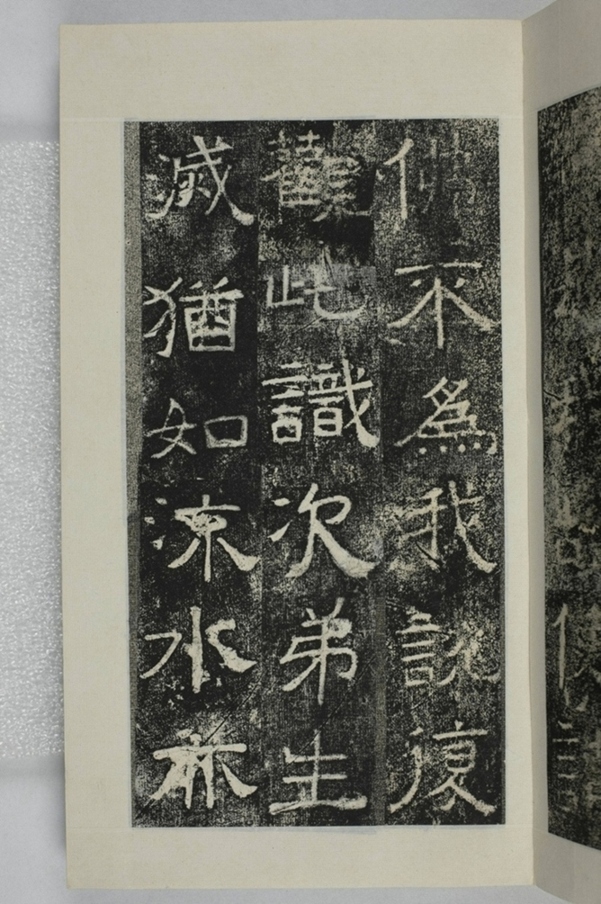 佛不為我說復
觀此識次弟生
滅猶如流水亦